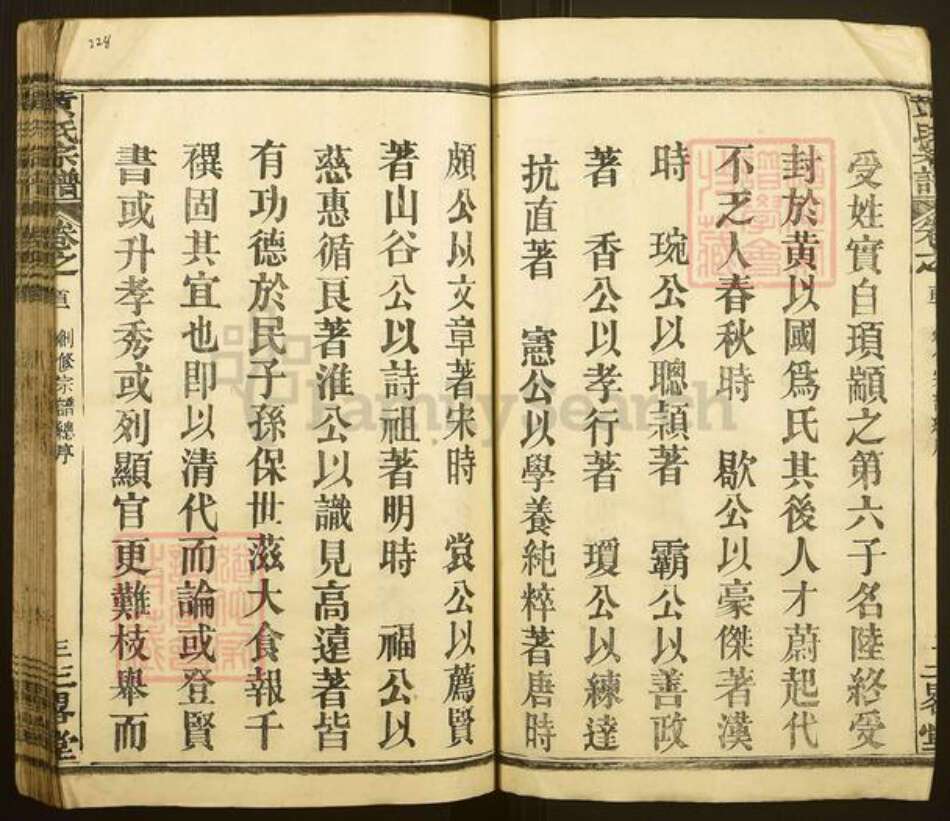 受姓實自頊顓之第六子名陸終受
封於黃以國爲氏其後人才蔚起代
不乏人春秋時 歇公以豪傑著漢
時 琬公以聰穎著 霸公以善政
著 香公以孝行著 瓊公以練達
抗直著 憲公以學養純粹著唐時
頗公以文章著宋時 裳公以薦賢
著山谷公以詩祖著明時 福公以
慈惠循良著淮公以識見高遠著皆
有功德於民子孫保世滋大食報千
禩固其宜也即以清代而論或登賢
書或升孝秀或列顯官更難枝舉而
黃氏宗譜 卷之首 創修宗譜總序 三 三畧堂
224
FamilySearch